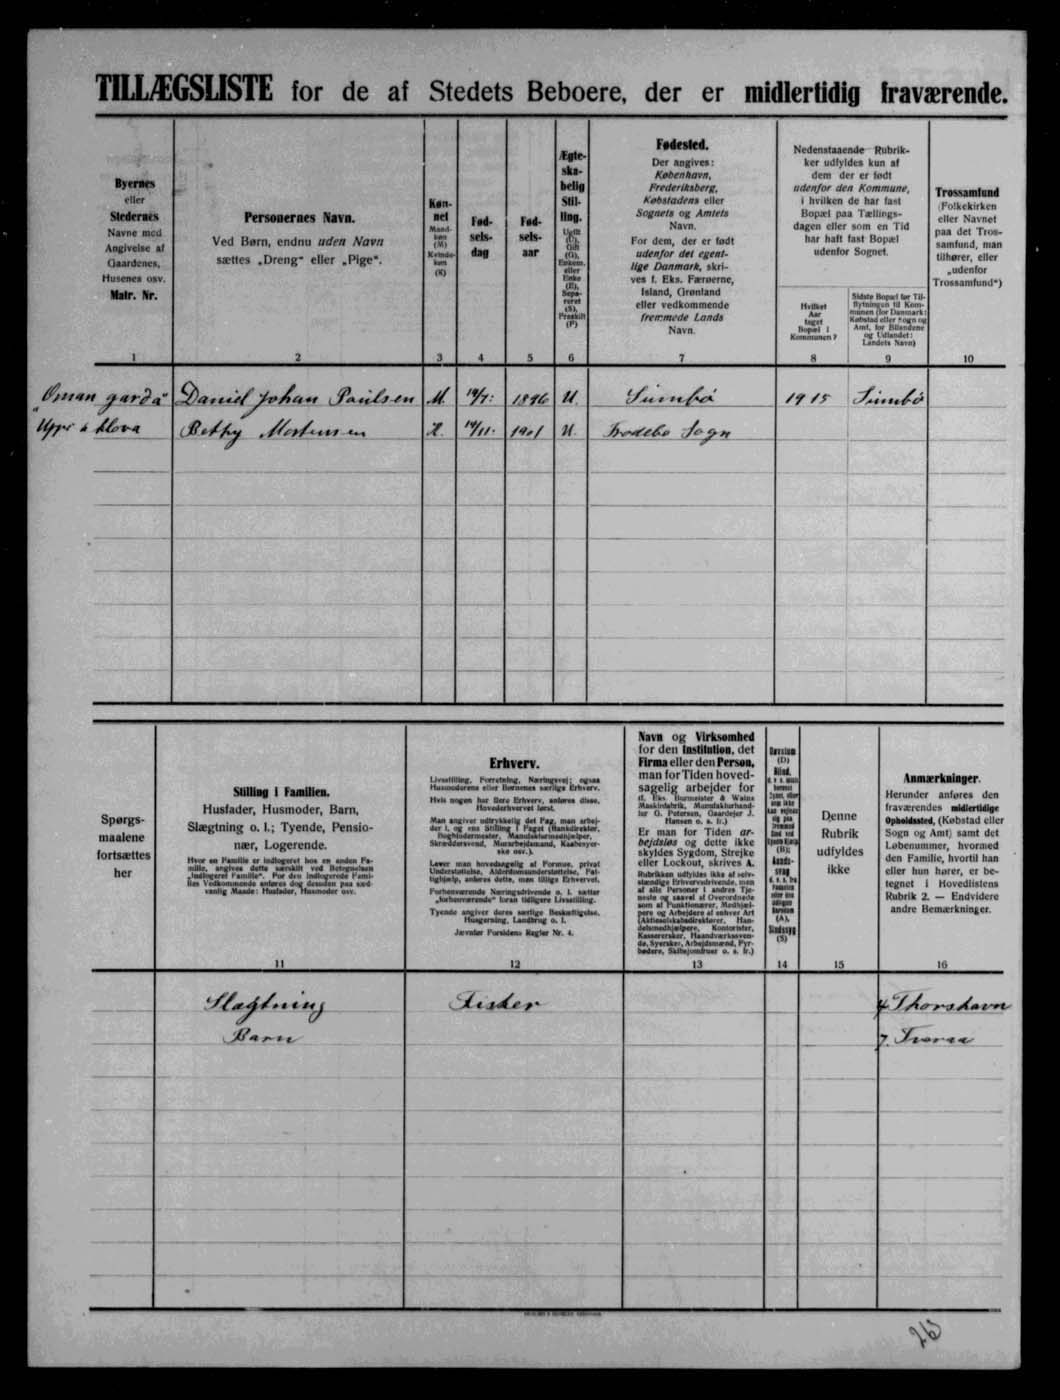 TILLÆGSLISTE for de af Stedets Beboere, der er midlertidig fraværende.
Byernes
eller
Stedernes
Navne med
Angivelse af
Gaardenes,
Husenes osv.
Matr. Nr.
1
Personernes Navn.
Ved Børn, endnu uden Navn
sættes „Dreng“ eller „Pige“.
2
Køn-
net
Mand-
køn
(M)
Kvinde-
køn
(K)
3
Fød-
sels-
dag
4
Fød-
sels-
aar
5
Ægte-
ska-
belig
Stil-
ling.
Ugift
(U),
Gift
(G),
Enkem.
eller
Enke
(E),
Sepa-
reret
(S),
Fraskilt
(F)
6
Fødested.
Der angives:
København,
Frederiksberg,
Købstadens eller
Sognets og Amtets
Navn.
For dem, der er født
udenfor det egent-
lige Danmark, skri-
ves f. Eks. Færøerne,
Island, Grønland
eller vedkommende
fremmede Lands
Navn.
7
Nedenstaaende Rubrik-
ker udfyldes kun af
dem der er født
udenfor den Kommune,
i hvilken de har fast
Bopæl paa Tællings-
dagen eller som en Tid
har haft fast Bopæl
udenfor Sognet.
Hvilket
Aar
taget
Bopæl i
Kommunen?
8
Sidste Bopæl før Til-
flytningen til Kom-
munen (for Danmark:
Købstad eller Sogn og
Amt, for Bilandene
og Udlandet:
Landets Navn)
9
Trossamfund
(Folkekirken
eller Navnet
paa det Tros-
samfund, man
tilhører, eller
„udenfor
Trossamfund“)
10
„Oman garda“ Daniel Johan Poulsen M. 14/7: 1896 U. Sumbö 1915 Sumbö
Uppi á Betty Mortensen K. 14/11. 1901 U. Frodebo Sogn
Spørgs-
maalene
fortsættes
her
Stilling i Familien.
Husfader, Husmoder, Barn,
Slægtning o. l.; Tyende, Pensio-
nær, Logerende.
Hvor en Familie er indlogeret hos en anden Fa-
milie, angives dette særskilt ved Betegnelsen
„indlogeret Familie“. For den indlogerede Fami-
lies Vedkommende anføres dog desuden paa sæd-
vanlig Maade: Husfader, Husmoder osv.
11
Erhverv.
Livsstilling, Forretning, Næringsvej; ogsaa
Husmoderens eller Børnenes særlige Erhverv.
Hvis nogen har flere Erhverv, anføres disse,
Hovederhvervet først.
Man angiver udtrykkelig det Fag, man arbej-
der i, og ens Stilling i Faget (Bankdirektør,
Bogbindermester, Manufakturmedhjælper,
Skræddersvend, Murarbejdsmand, Kaabesyer-
ske osv.).
Lever man hovedsagelig af Formue, privat
Understøttelse, Alderdomsunderstøttelse, Fat-
tighjælp, anføres dette, men tillige Erhvervet.
Forhenværende Næringsdrivende o. l. sætter
„forhenværende“ foran tidligere Livsstilling.
Tyende angiver deres særlige Beskæftigelse,
Husgerning, Landbrug o. l.
Jævnfør Forsidens Regler Nr. 4.
12
Navn og Virksomhed
for den Institution, det
Firma eller den Person,
man for Tiden hoved-
sagelig arbejder for
(f. Eks. Burmeister & Wains
Maskinfabrik, Manufakturhand-
ler G. Petersen, Gaardejer J.
Hansen o. s. fr.)
Er man for Tiden ar-
bejdsløs og dette ikke
skyldes Sygdom, Strejke
eller Lockout, skrives A.
Rubrikken udfyldes ikke af selv-
stændige Erhvervsdrivende, men
af alle Personer i andres Tje-
neste og saavel af Overordnede
som af Funktionærer, Medhjæl-
pere og Arbejdere af enhver Art
(Aktieselskabsdirektører, Han-
delsmedhjælpere, Kontorister,
Kasserersker, Haandværkssven-
de, Syersker, Arbejdsmænd, Fyr-
bødere, Skibsjomfruer o. s. fr.)
13
Døvstum
(D)
Blind,
(B);
Aands-
svag
(A),
Sindssyg
(S)
14
Denne
Rubrik
udfyldes
ikke
15
Anmærkninger.
Herunder anføres den
fraværendes midlertidige
Opholdssted, (Købstad eller
Sogn og Amt) samt det
Løbenummer, hvormed
den Familie, hvortil han
eller hun hører, er be-
tegnet i Hovedlistens
Rubrik 2. — Endvidere
andre Bemærkninger.
16
Slægtning Fisker 4 Thorshavn
Barn 7. Tveraa
26